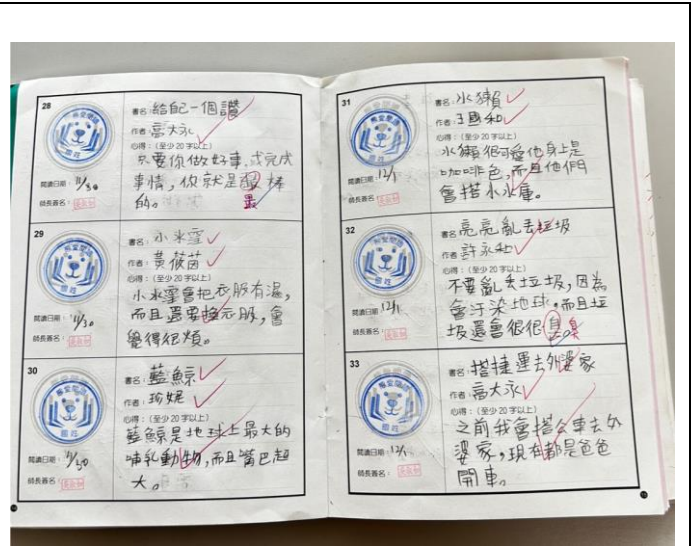 28
書名:給自己一個讚
作者:高大永
心得:(至少20字以上)
只要你做好事,或完成
事情,你就是很棒
的。
最
閱讀日期:11/30
師長簽名:
29
書名:小水窪
作者:黃筱茵
心得:(至少20字以上)
小水窪會把衣服弄濕,
而且還要換衣服,會
覺得很煩。
閱讀日期:11/30
師長簽名:
30
書名:藍鯨
作者:珍妮
心得:(至少20字以上)
藍鯨是地球上最大的
哺乳動物,而且嘴巴超
大。
閱讀日期:11/30
師長簽名:
31
書名:水獺
作者:王國和
心得:(至少20字以上)
水獺很可愛他身上是
咖啡色,而且他們
會搭小水庫。
閱讀日期:12/1
師長簽名:
32
書名:亮亮亂丟垃圾
作者:許永和
心得:(至少20字以上)
不要亂丟垃圾,因為
會汙染地球,而且垃
圾還會很很臭。臭
閱讀日期:12/1
師長簽名:
33
書名:搭捷運去外婆家
作者:高大永
心得:(至少20字以上)
之前我會搭公車去外
婆家,現在都是爸爸
開車。
閱讀日期:12/1
師長簽名: